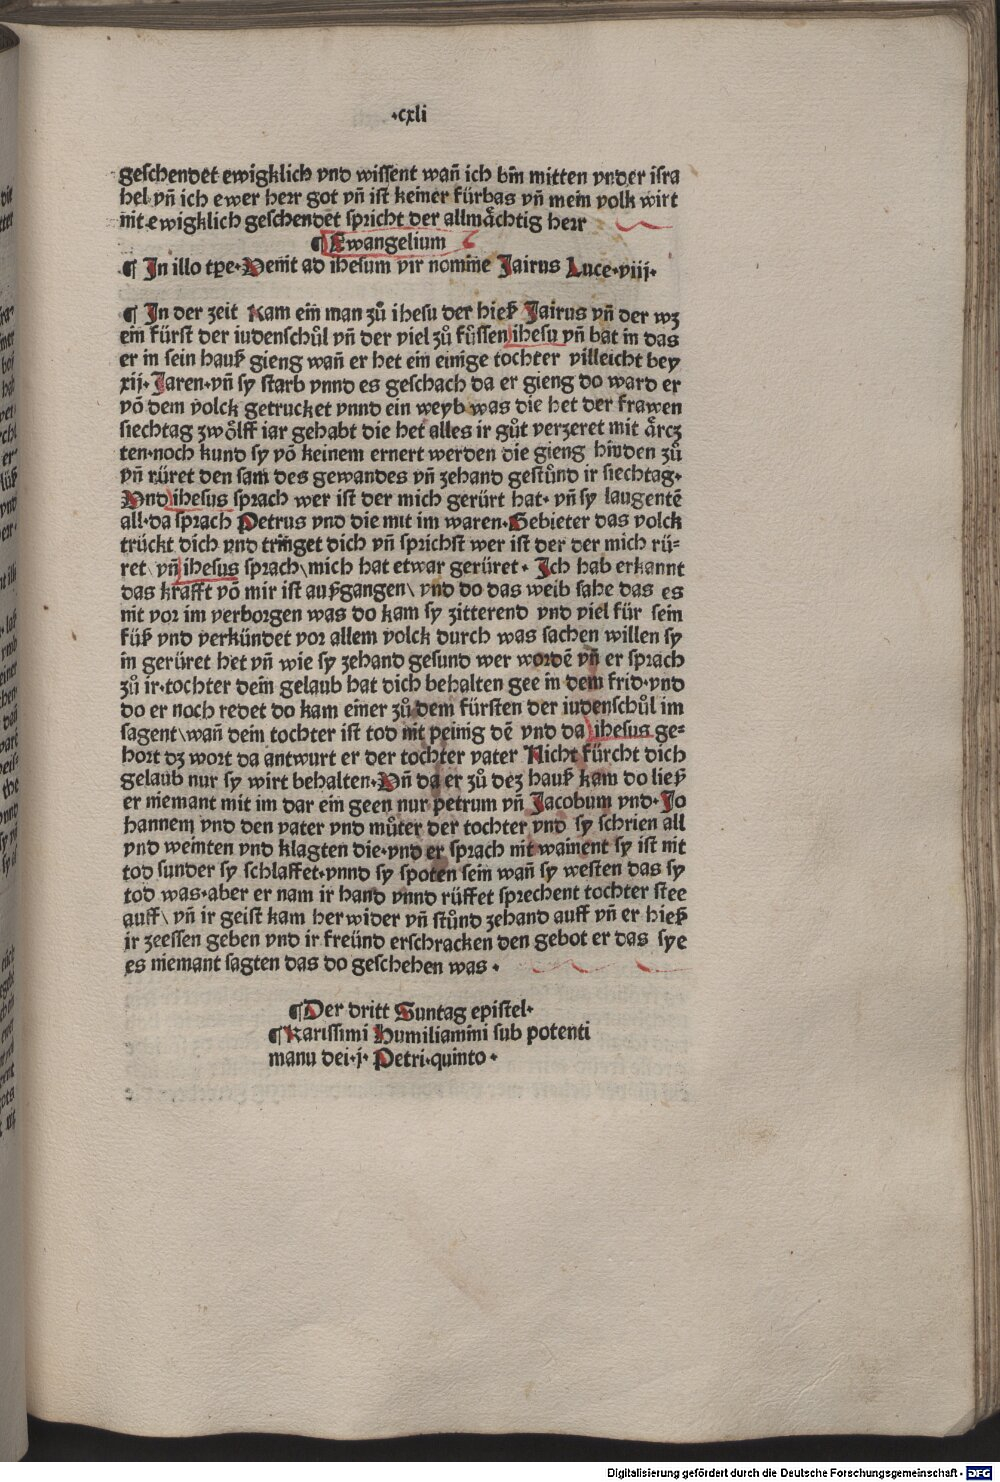 ·cxli
geschendet ewigklich vnd wissent wañ ich bin mitten vnder isra
hel vñ ich ewer herr got vñ ist keiner fürbas vñ mein volk wirt
nit ewigklich geschendet spricht der allmächtig herr
¶ Ewangelium
¶ In illo tp̄e·Venit ad ihesum vir nomine Jairus Luce·viij·
¶ In der zeit Kam ein man zů ihesu der hieß Jairus vñ der wz
ein fürst der iudenschůl vñ der viel zů füssen ihesu vñ bat in das
er in sein hauß gieng wañ er het ein einige tochter villeicht bey
xij· Jaren·vñ sy starb vnnd es geschach da er gieng do ward er
võ dem volck getrucket vnnd ein weyb was die het der frawen
siechtag zwölff iar gehabt die het alles ir gůt verzeret mit ärcz
ten·noch kund sy võ keinem ernert werden die gieng hinden zů
vñ rüret den sam des gewandes vñ zehand gestůnd ir siechtag·
Vnd ihesus sprach wer ist der mich gerürt hat· vñ sy laugentē
all·da sprach Petrus vnd die mit im waren·Gebieter das volck
trückt dich vnd tringet dich vñ sprichst wer ist der der mich rü⸗
ret\ vñ ihesus sprach\ mich hat etwar gerüret· Ich hab erkannt
das krafft võ mir ist außgangen\ vnd do das weib sahe das es
nit vor im verborgen was do kam sy zitterend vnd viel für sein
füß vnd verkündet vor allem volck durch was sachen willen sy
in gerüret het vñ wie sy zehand gesund wer wordē vñ er sprach
zů ir·tochter dein gelaub hat dich behalten gee in dem frid·vnd
do er noch redet do kam einer zů dem fürsten der iudenschůl im
sagent\ wañ dein tochter ist tod nit peinig dē vnd da ihesus ge⸗
hort dz wort da antwurt er der tochter vater Nicht fürcht dich
gelaub nur sy wirt behalten·Vñ da er zů dez hauß kam do ließ
er niemant mit im dar ein geen nur petrum vñ Jacobum vnd·Jo
hannem vnd den vater vnd můter der tochter vnd sy schrien all
vnd weinten vnd klagten die·vnd er sprach nit wainent sy ist nit
tod sunder sy schlaffet·vnnd sy spoten sein wañ sy westen das sy
tod was·aber er nam ir hand vnnd rüffet sprechent tochter stee
auff\ vñ ir geist kam her wider vñ stůnd zehand auff vñ er hieß
ir zeessen geben vnd ir freünd erschracken den gebot er das sye
es niemant sagten das do geschehen was·
¶Der dritt Suntag epistel·
¶Karissimi Humiliamini sub potenti
manu dei·j· Petri·quinto·
Digitalisierung gefördert durch die Deutsche Forschungsgemeinschaft - DFG